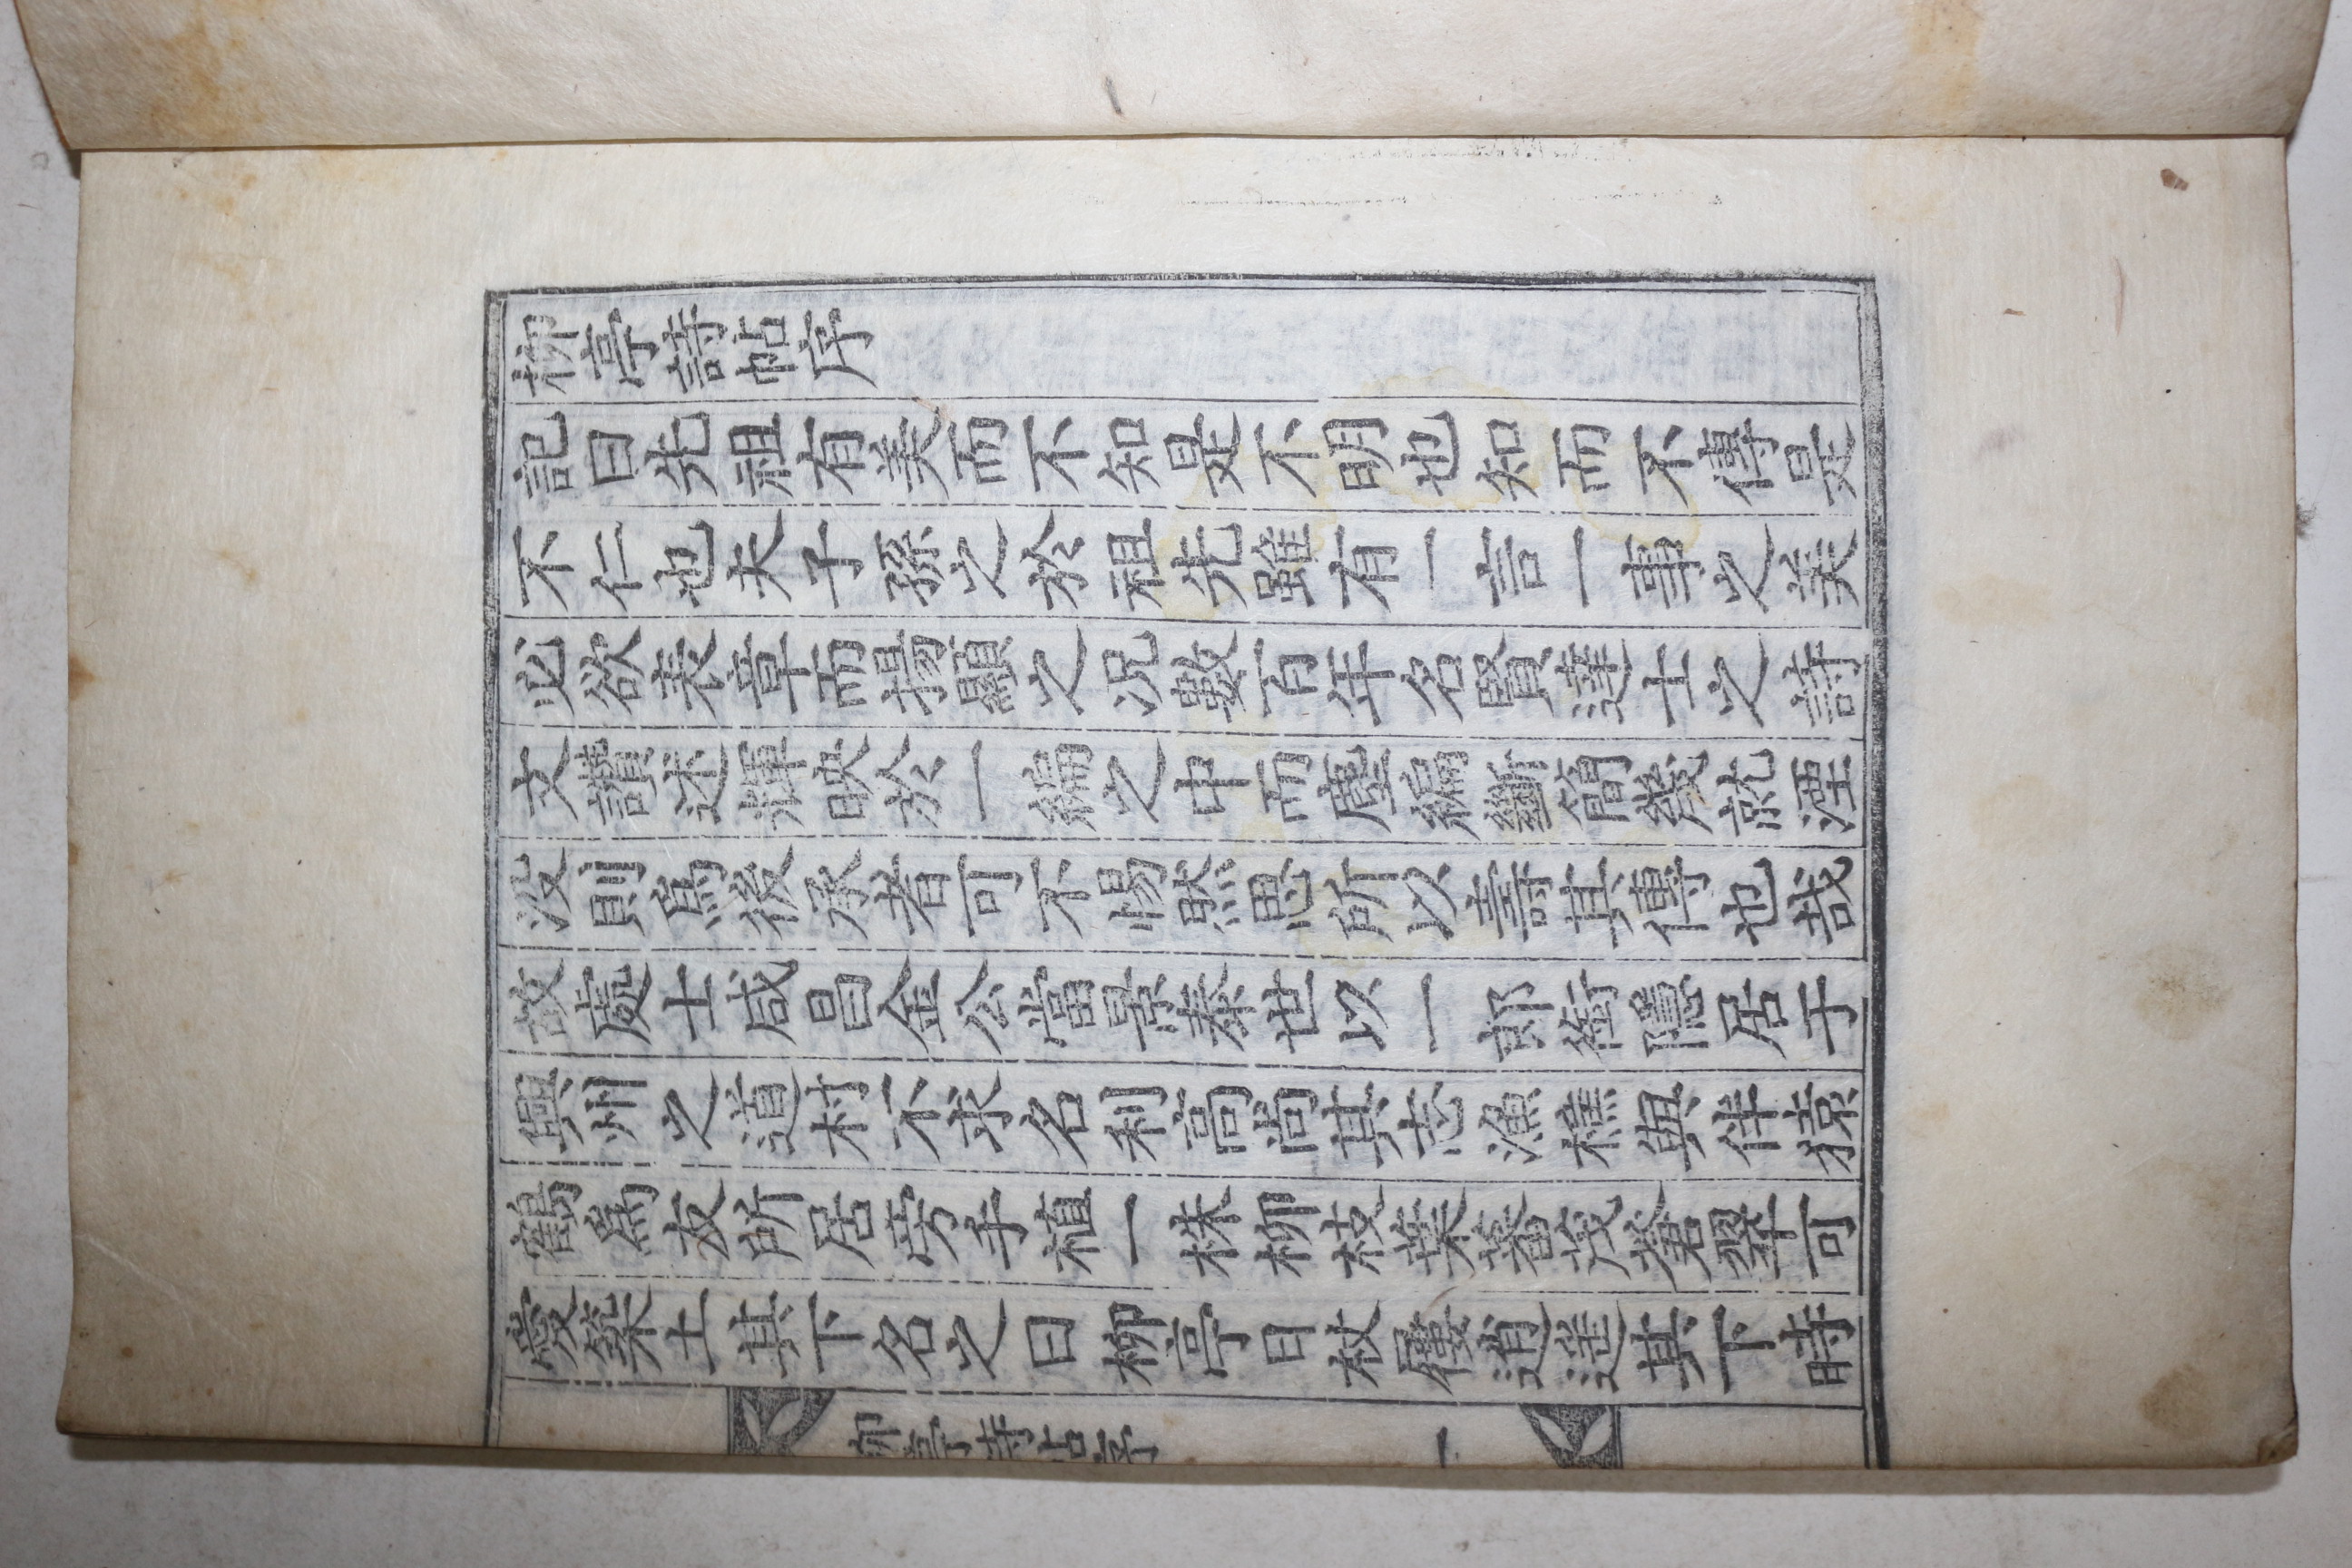 柳亭詩帖序
記曰先祖有美而不知是不明也知而不傳是
不仁也夫子孫之於祖先雖有一言一事之美
必欲表章而揚顯之況數百年名賢達士之詩
文讚述輝映於一編之中而塵編斷簡幾就湮
沒則爲後承者可不惕然思所以壽其傳也哉
故處士咸昌金公當景泰世以一郎銜隱居于
興州之道村不求名利高尚其志漁樵與伴猿
鶴爲友所居旁手植一株柳枝葉蕃茂蒼翠可
愛築土其下名之曰柳亭日杖屨逍遙其下時
柳亭詩帖序 一